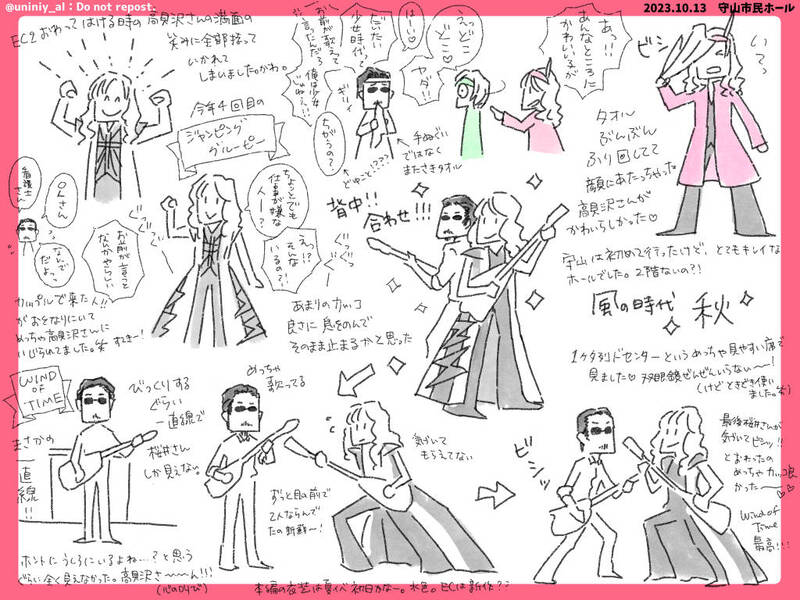 @uniniy_al：Do not repost.
2023.10.13　守山市民ホール
EC2おわってはける時の高見沢さんの満面の
笑みに全部持って
いかれて
しまいました。かわ。
今年4回目の
ジャンピング
グルーピー
看護士
さん
OLさん
なんで
だよっ
お前が言うと
なんかやらしい
ちょっとでも
仕事が嫌な
人ー？
えっ！？
そんなに
いるの？！
カップルで来た人！！
がおとなりにいて
めっちゃ高見沢さんに
いじられてました。笑 すごーい！
あまりのカッコ
良さに息をのんで
そのまま止まるかと思った
だいたい
少女時代って
お前が教えて
言ったんだろ
俺は少女
じゃねぇ！！
ちがうの？
はーい♡
えっ
どこどこ
ヤダ！！
ギリ！
手ぬぐい
ではなく
またさきタオル
どゆこと！？？？
あっ！！
あんなところに
かわいい子が
ビシッ
いてっ
タオル
ぶんぶん
ふり回してて
顔にあたっちゃった
高見沢さんが
かわいらしかった♡
背中！！
合わせ！！！
守山は初めて行ったけど、とてもキレイな
ホールでした。2階ないの？！
風の時代 秋
1ケタ列ドセンターというめっちゃ見やすい席で
見ました♡ 双眼鏡ぜんぜんいらない〜！
（けどときどき使い
ました。笑）
WIND
OF
TIME
まさかの
一直線！！
びっくりする
ぐらい
一直線で
桜井さん
しか見えない。
めっちゃ
歌ってる
ずっと目の前で
2人ならんで
たの新鮮〜！
気づいて
もらえてない
ビシッ
最後桜井さんが
気づいてビシッ！！
とおわったの
めっちゃカッコ良
かった〜♡♡
Wind of
Time
最高！！！
ホントにうしろにいるよね…？と思う
ぐらい全く見えなかった。高見沢さ〜〜ん！！！
（心の叫び）
本編の衣装は夏イベ初日かなー。水色。ECは新作？